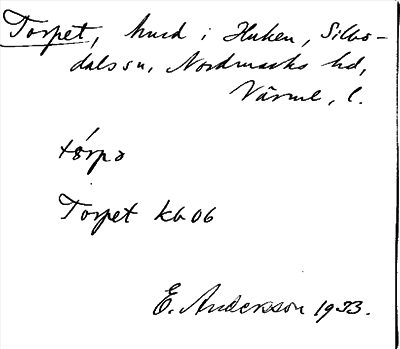 Torpet, hmd i Huken, Silbo-
dals sn, Nordmarks hd,
Värml. l.
tórpə
Torpet kb 06
E. Andersson 1933.